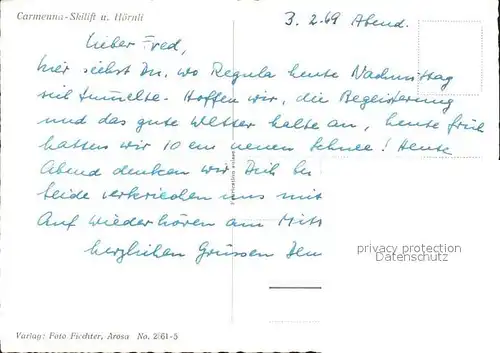 Carmenna-Skilift u. Hörnli
3. 2. 69 Abend.
Lieber Fred,
hier siehst Du, wo Regula heute Nachmittag
sich tummelte. Hoffen wir, die Begeisterung
und das gute Wetter halte an, heute früh
hatten wir 10 cm neuen Schnee! Heute
Abend denken wir Dich bei
beide verkriechen uns mit
Auf Wiederhören am Mitt
herzlichen Grüssen
privacy protection
Datenschutz
Verlag: Foto Fiechter, Arosa No. 2861-5